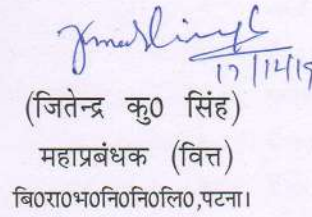 (जितेन्द्र कु0 सिंह)
महाप्रबंधक (वित्त)
बि0रा0भ0नि0नि0लि0,पटना।